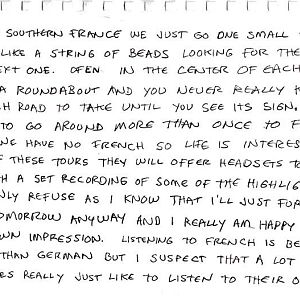 SOUTHERN FRANCE WE JUST GO ONE SMALL
LIKE A STRING OF BEADS LOOKING FOR THE
EXT ONE. OFEN IN THE CENTER OF EACH
A ROUNDABOUT AND YOU NEVER REALLY K
H ROAD TO TAKE UNTIL YOU SEE ITS SIGN,
TO GO AROUND MORE THAN ONCE TO F
NE HAVE NO FRENCH SO LIFE IS INTERES
F THESE TOURS THEY WILL OFFER HEADSETS TO
H A SET RECORDING OF SOME OF THE HIGHLIG
NLY REFUSE AS I KNOW THAT I'LL JUST FOR
OMORROW ANYWAY AND I REALLY AM HAPPY
WN IMPRESSION. LISTENING TO FRENCH IS BE
THAN GERMAN BUT I SUSPECT THAT A LOT
RS REALLY JUST LIKE TO LISTEN TO THEIR O